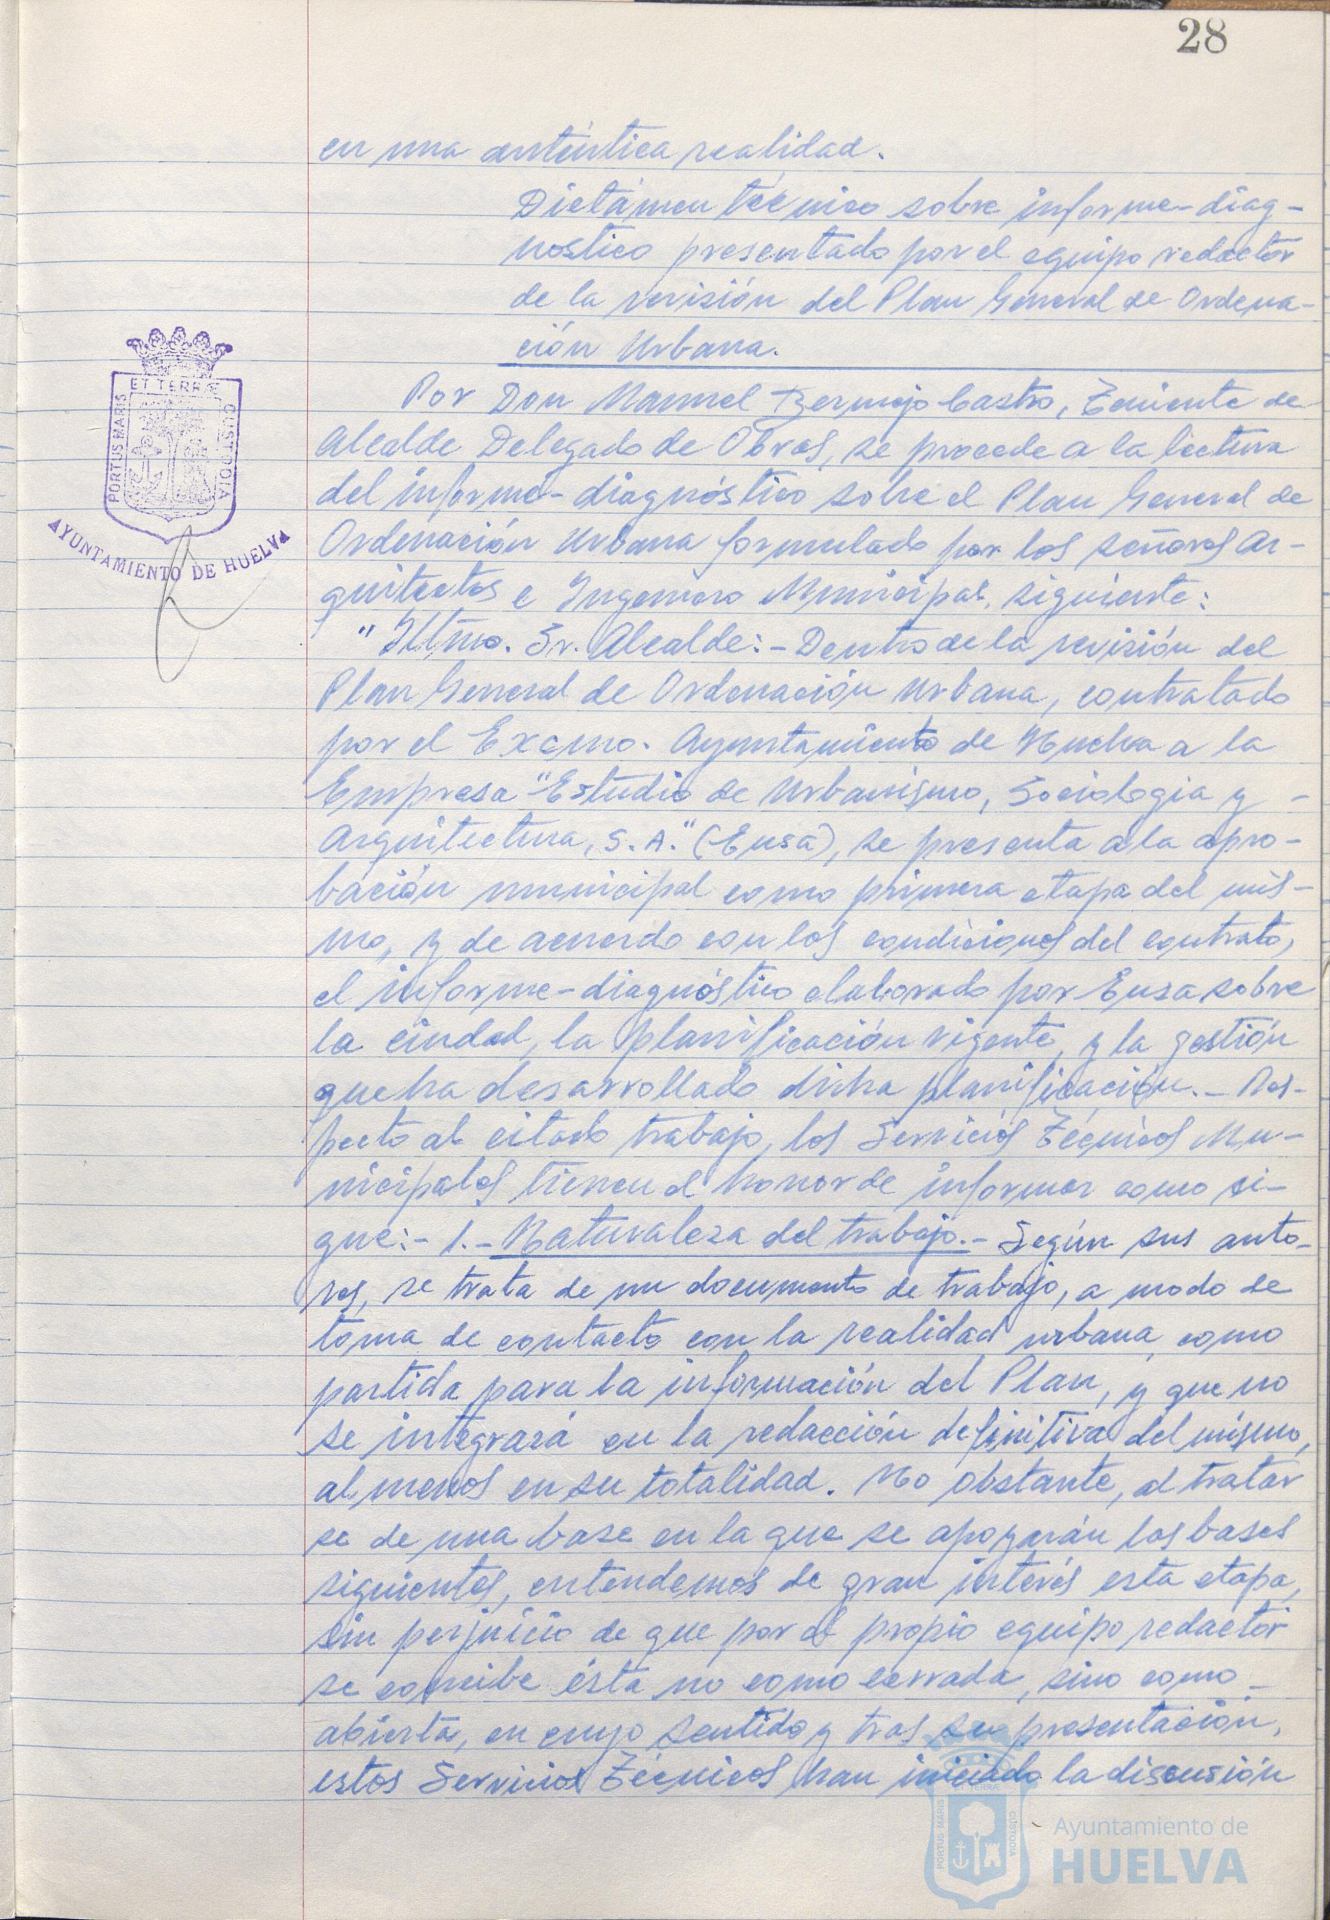 28
en una auténtica realidad.
Dictámen técnico sobre informe-diag-
nostico presentado por el equipo redactor
de la revisión del Plan General de Ordena-
ción Urbana.
Por Don Manuel Bermejo Castro, Teniente de
Alcalde Delegado de Obras, se procede a la lectura
del informe-diagnóstico sobre el Plan General de
Ordenación Urbana formulado por los señores Ar-
quitectos e Ingeniero Municipal, siguiente:
"Iltmo. Sr. Alcalde:- Dentro de la revisión del
Plan General de Ordenación Urbana, contratado
por el Excmo. Ayuntamiento de Huelva a la
Empresa "Estudio de Urbanismo, Sociologia y -
Arquitectura, S.A." (Eusa), se presenta a la apro-
bación municipal como primera etapa del mis-
mo, y de acuerdo con las condiciones del contrato,
el informe-diagnóstico elaborado por Eusa sobre
la ciudad, la planificación vigente, y la gestión
que ha desarrollado dicha planificación.- Res-
pecto al citado trabajo, los Servicios Técnicos Mu-
nicipales tienen el honor de informar como si-
gue:- 1.- Naturaleza del trabajo.- Según sus auto-
res, se trata de un documento de trabajo, a modo de
toma de contacto con la realidad urbana, como
partida para la información del Plan, y que no
se integrará en la redacción definitiva del mismo,
al menos en su totalidad. No obstante, al tratar
se de una base en la que se apoyarán las bases
siguientes, entendemos de gran interés esta etapa,
sin perjuicio de que por el propio equipo redactor
se concibe ésta no como cerrada, sino como -
abierta, en cuyo sentido y tras su presentación,
estos Servicios Técnicos han iniciado la discusión
ET TERRÆ
PORTUS MARIS
CUSTODIA
AYUNTAMIENTO DE HUELVA
Ayuntamiento de
HUELVA
PORTUS MARIS
ET TERRA
CUSTODIA